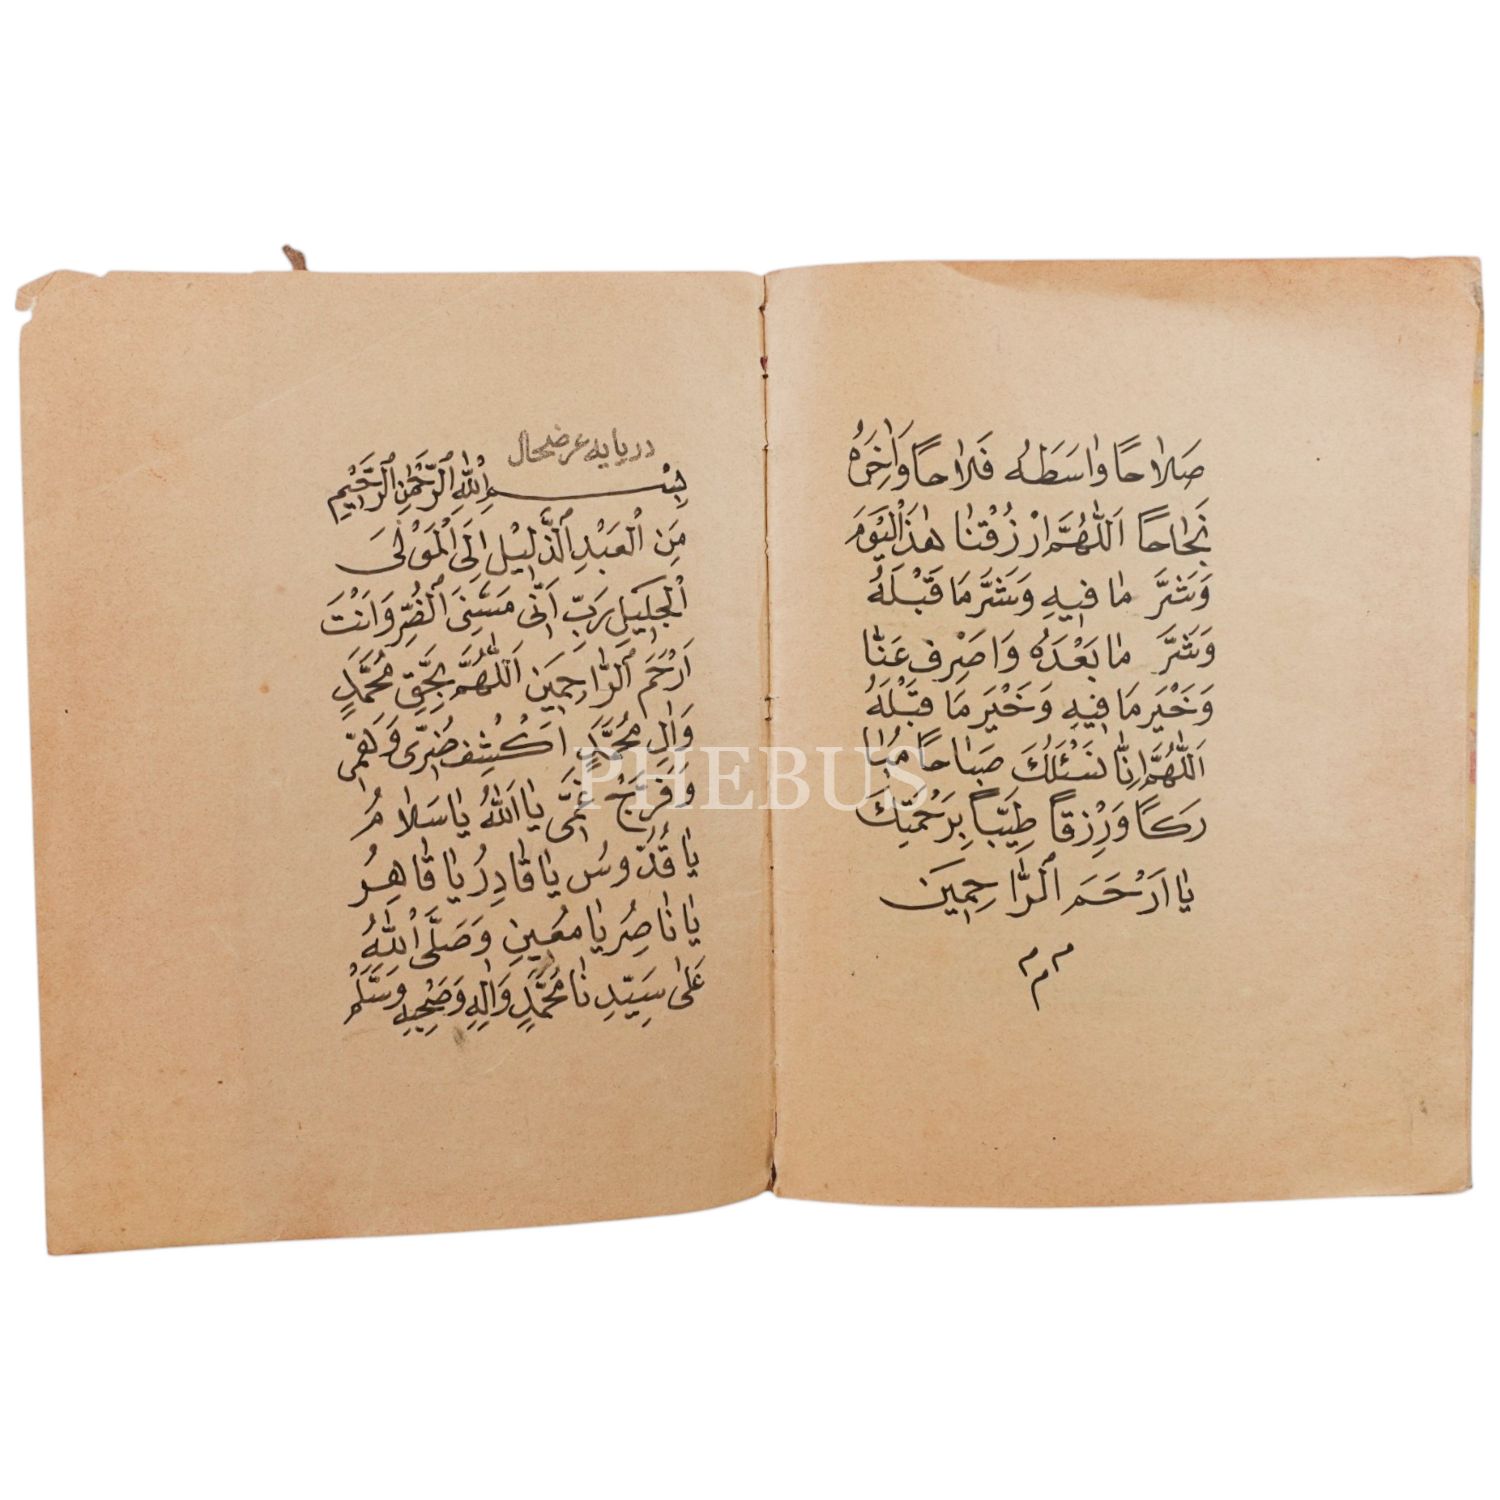 صَلَاحًا وَاَسَطَهُ فَلَاحًا وَاٰخِرَهُ
نَجَاحًا اَللّٰهُمَّ ارْزُقْنَا هٰذَالْيَوْمَ
وَشَرَّ مَا فِيهِ وَشَرَّ مَا قَبْلَهُ
وَشَرَّ مَا بَعْدَهُ وَاصْرِفْ عَنَّا
وَخَيْرَ مَا فِيهِ وَخَيْرَ مَا قَبْلَهُ
اَللّٰهُمَّ اِنَّا نَسْئَلُكَ صَبَاحًا مُبَا
رَكًا وَرِزْقًا طَيِّبًا بِرَحْمَتِكَ
يَا اَرْحَمَ الرَّاحِمِينَ
م م م
دريايه عرضحال
بِسْمِ اللّٰهِ الرَّحْمٰنِ الرَّحِيْمِ
مِنَ الْعَبْدِ الذَّلِيْلِ اِلَى الْمَوْلَى
الْجَلِيلِ رَبِّ اَنِّى مَسَّنِىَ الضُّرُّ وَاَنْتَ
اَرْحَمَ الرَّاحِمِينَ اَللّٰهُمَّ بِحَقِّ مُحَمَّدٍ
وَاٰلِ مُحَمَّدٍ اَكْشِفْ ضُرِّى وَهَمِّى
وَفَرِّجْ غَمِّى يَا اَللّٰهُ يَا سَلَامُ
يَا قُدُّوسُ يَا قَادِرُ يَا قَاهِرُ
يَا نَاصِرُ يَا مُعِينُ وَصَلَّى اللّٰهُ
عَلَى سَيِّدِنَا مُحَمَّدٍ وَاٰلِهِ وَصَحْبِهِ وَسَلَّمْ
PHEBUS